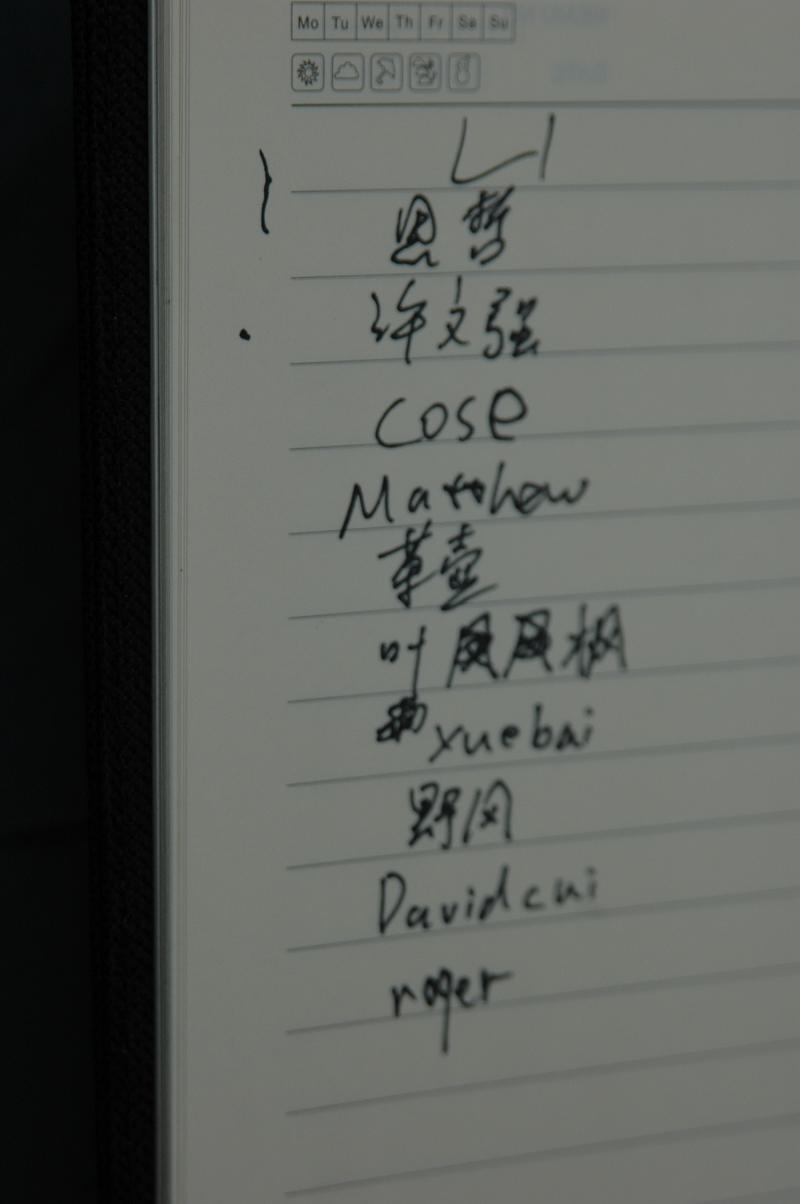 Mo Tu We Th Fr Sa Su
LI
思哲
许文强
cose
Matthew
草壶
叶枫
xuebai
野风
Davidcui
roger